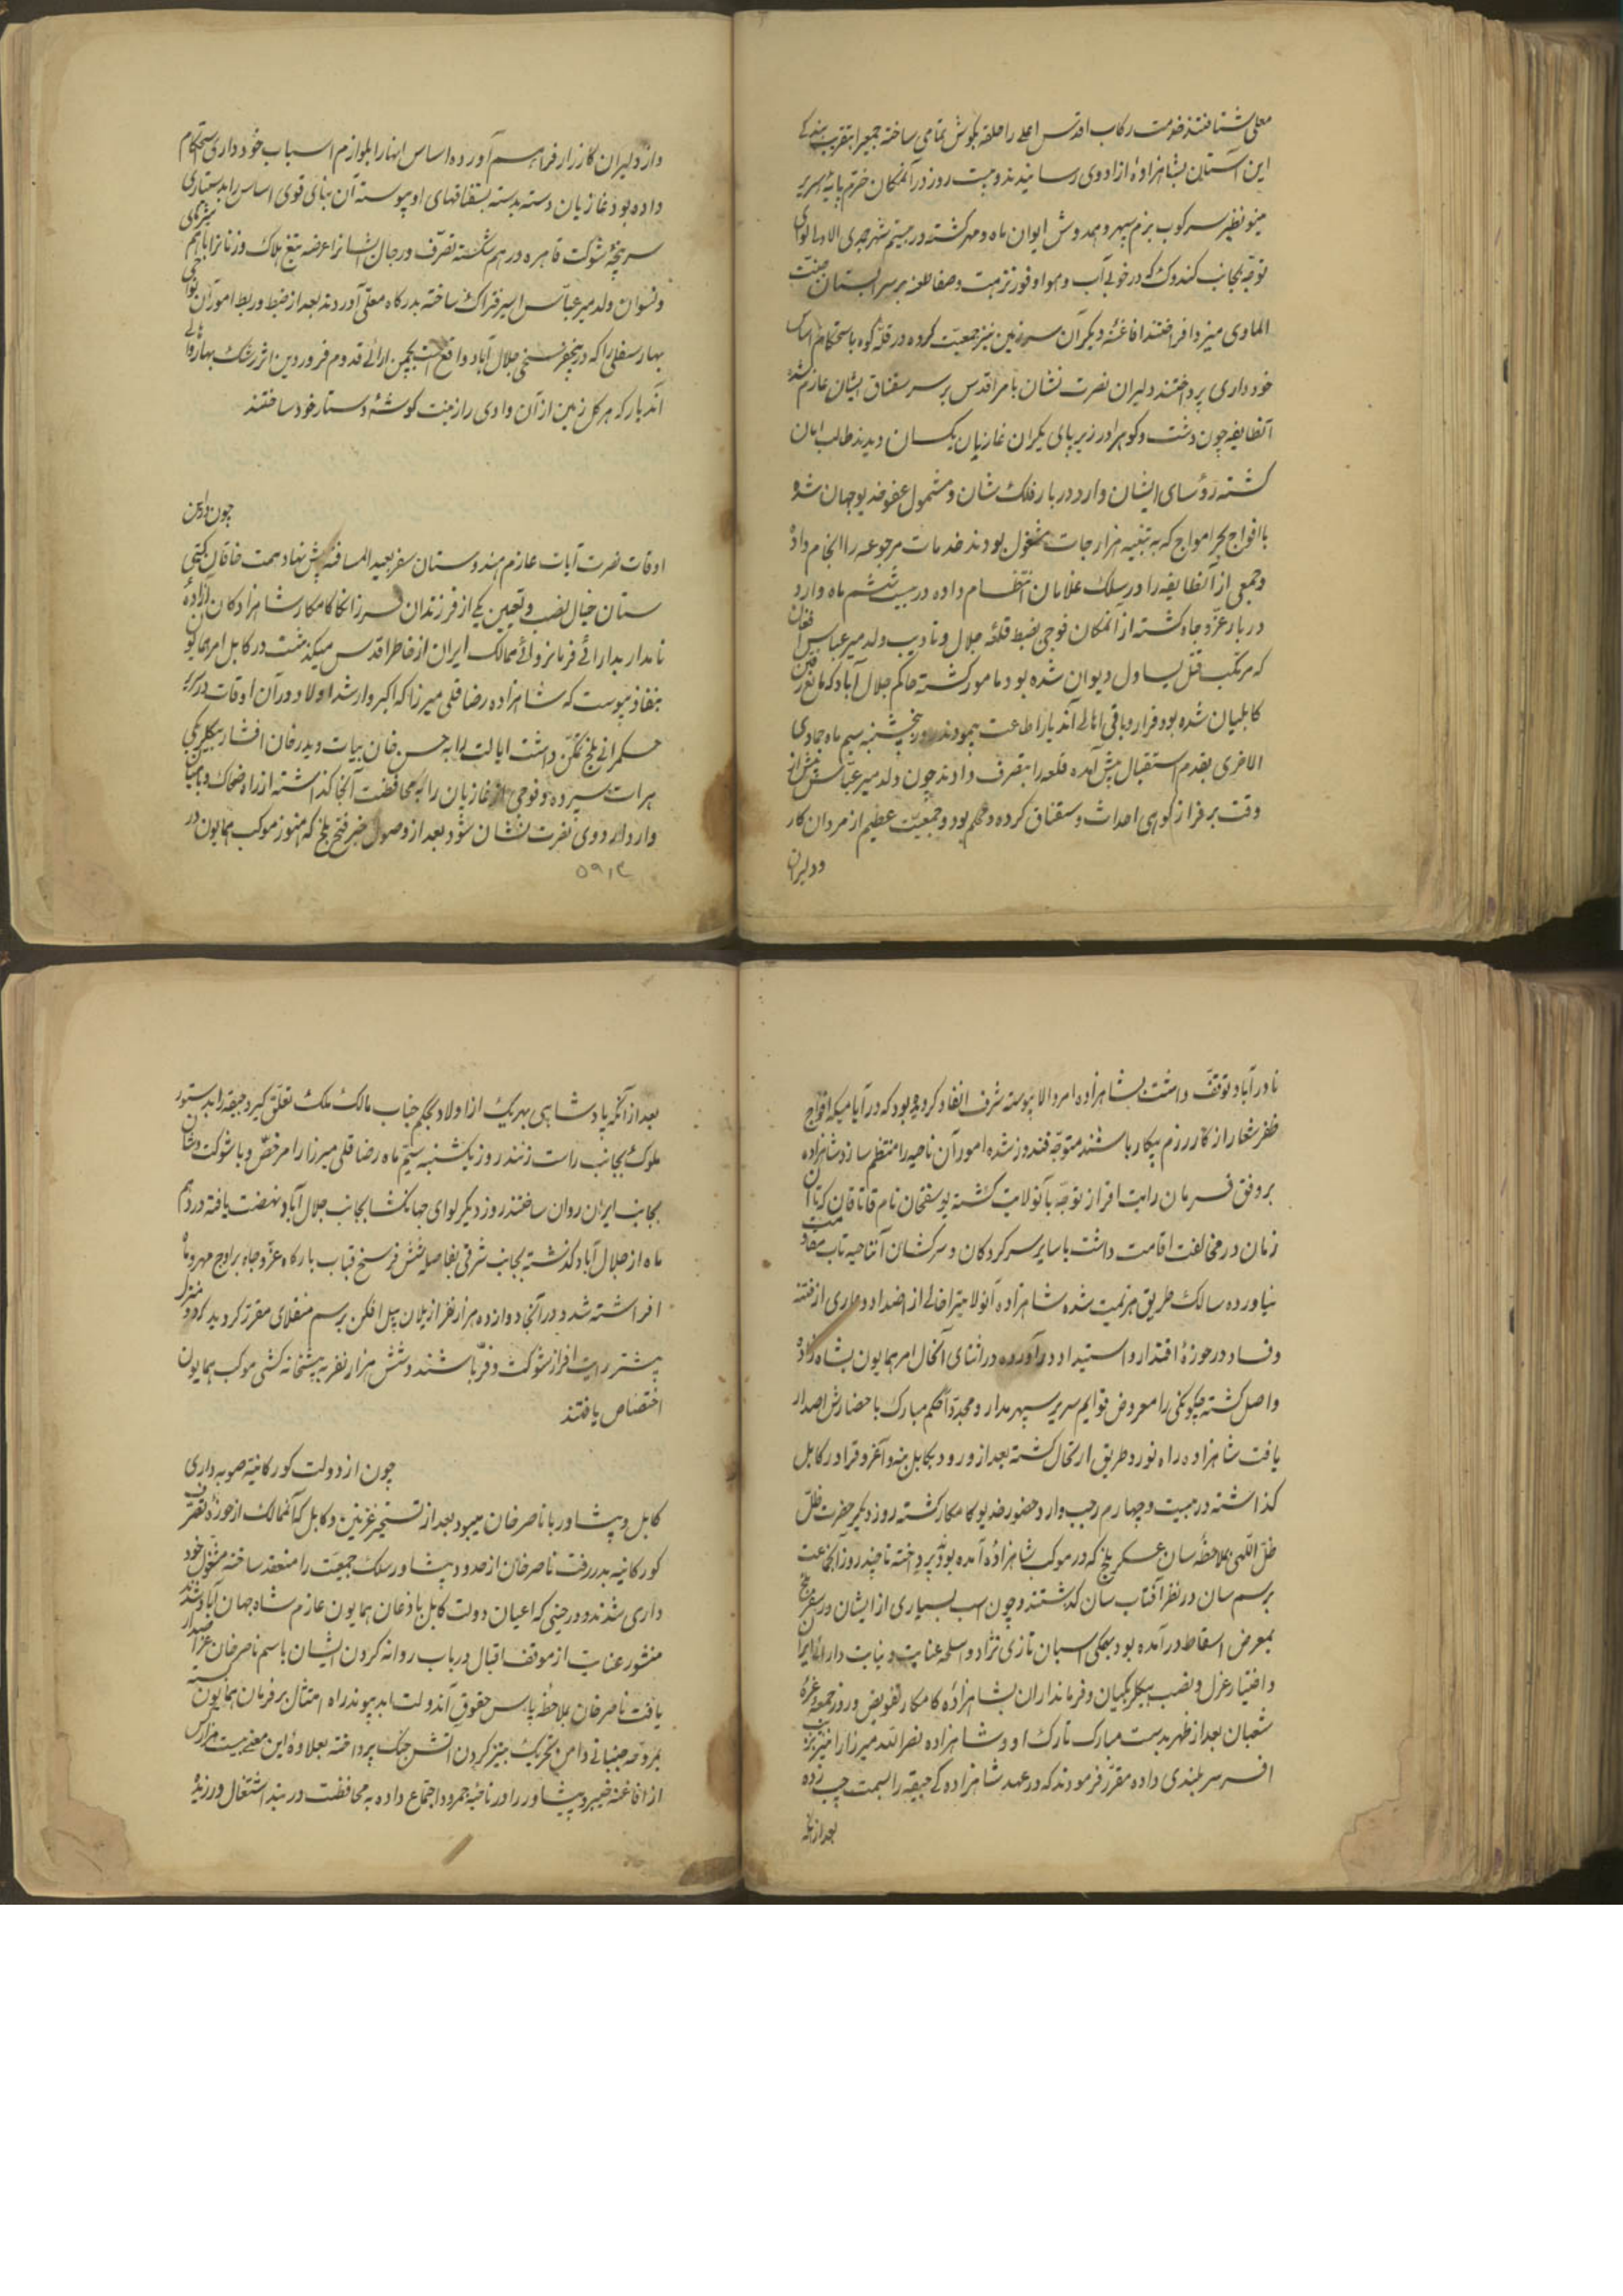 معلی شتافتند خدمت رکاب اقدس اعلی را حلقه بکوش تمامی ساخته جمعیرا بتقریب بندکی
این آستان بشاهزاده آزادوی رسانیدند و بیست روز در آنمکان خرم پایهٔ سریر
مینو نظیر سرکوب بزم سپهر و همدوش ایوان ماه و مهر کشته در بیستم شهر جمادی الاولی لوای
توجه بجانب کندوک که در خوبی آب و هوا و وفور نزهت و صفا طعنه بر سرابستان جنت
الماوی میزد افراختند افاغنهٔ دیکر آن سرزمین نیز جمعیت کرده در قلهٔ کوه باستحکام اساس
خودداری پرداختند دلیران نصرت نشان بامر اقدس بر سر سقناق ایشان عازم شده
آنطایفه چون دشت و کوه را در زیر پای یکران غازیان یکسان دیدند طالب امان
کشته رؤسای ایشان وارد دربار فلک شان و مشمول عفو خدیو جهان شد و
با افواج بحر امواج که به تنبیه هزارجات مشغول بودند خدمات مرجوعه را انجام داده
و جمعی از آنطایفه را در سلک غلامان انتظام داده در بیست ششم ماه وارد
دربار عز و جاه کشته از آنمکان فوجی بضبط قلعهٔ جلال و تادیب ولد میر عباس افغان
که مرتکب قتل یساول دیوان شده بود مامور کشته حاکم جلال آباد که مانع رفتن
کابلیان شده بود فرار و باقی اهالی آندیار اطاعت نمودند روز پنجشنبه سیم ماه جمادی
الاخری بقدم استقبال پیش آمده قلعه را بتصرف دادند چون ولد میر عباس پیش از
وقت بر فراز کوهی احداث سقناق کرده و محکم بود و جمعیت عظیم از مردان کار
و دلیران
واز دلیران کارزار فراهم آورده اساس اینها را بلوازم اسباب خودداری استحکام
داده بود غازیان دسته بدسته بسقناقهای او پیوسته آن بنای قوی اساس را بدستیاری
سرپنجهٔ شوکت قاهره در هم شکسته تصرف و رجال ایشانرا عرضه تیغ هلاک و زنانرا باهم
و نسوان ولد میر عباس اسیر فتراک ساخته بدرکاه معلی آوردند بعد از ضبط و ربط امور آن نواحی
بهار سفلی را که در پنجفرسخی جلال آباد واقع است بچمن آرائی قدوم فروردین اثر رشک بهار
آندیار که هر کل زمین از آن وادی را زینت کوشهٔ دستار خود ساختند
چون در این
اوقات نصرت آیات عازم هندوستان سفر بعید المسافه پیش نهاد همت خاقان کیتی
ستان خیال نصب و تعیین یکی از فرزندان فرزانکا کامکار شاهزادکان آزاده
نامدار بدارائی فرمانروائی ممالک ایران از خاطر اقدس میکذشت در کابل امر همایون
بنفاذ پیوست که شاهزاده رضاقلی میرزا که اکبر و ارشد اولاد و در آن اوقات در کار
حکمرانی بلخ تمکن داشت ایالت را به حسن خان بیات و بدرخان افشار بیکلربیکی
هرات سپرده و فوجی از غازیان را به محافظت آنجا کذاشته از راه ضحاک و بامیان
وارد اردوی نصرت نشان شود بعد از وصول خبر فتح بلخ که هنوز موکب همایون در
نادرآباد توقف داشت بشاهزاده امر والا پیوسته شرف انفاذ کردیده بود که در ایامیکه افواج
ظفر شعار از کار رزم پیکار باشند متوجه قندوز شده امور آن ناحیه را منتظم سازد شاهزاده
بر وفق فرمان رایت افراز توجه بآنولایت کشته یوسفخان نام قاتاقان که تا آن
زمان در مخالفت اقامت داشت با سایر سرکردکان و سرکشان آنناحیه تاب مقاومت
نیاورده سالک طریق هزیمت شده شاهزاده آنولایترا خالی از اضداد و عاری از فتنه
و فساد در حوزهٔ اقتدار و استیداد در آورده در اثنای آنحال امر همایون بشاهزاده
واصل کشته چکونکی را معروض قوایم سریر سپهر مدار و مجددا حکم مبارک باحضارش اصدار
یافت شاهزاده راه نورد طریق ارتحال کشته بعد از ورود بکابل بنه و آغروق را در کابل
کذاشته در بیست و چهارم رجب وارد حضور خدیو کامکار کشته روز دیکر حضرت ظل
ظل اللهی بملاحظهٔ سان عسکر بلخ که در موکب شاهزاده آمده بود پرداخته تا چند روز آنجماعت
برسم سان در نظر آفتاب سان کذشتند و چون اسب بسیاری از ایشان در سفر بلخ
بمعرض اسقاط در آمده بود بهمکی اسبان تازی نژاد و اسلحه عنایت و نیابت دارائی ایران
و اختیار عزل و نصب بیکلربیکیان و فرمانداران بشاهزادهٔ کامکار تفویض و روز جمعه غرهٔ
شعبان بعد از ظهر بدست مبارک تارک او و شاهزاده نصرالله میرزا را نیز بزیب
افسر سربلندی داده مقرر فرمودند که در عهد شاهزادهکی جیقه را بسمت چپ زده
بعد از آنکه
بعد از آنکه پادشاهی بهریک از اولاد بحکم جناب مالک الملک تعلق کیرد جیقه را بدستور
ملوک بجانب راست زنند روز یکشنبه سیم ماه رضاقلی میرزا را مرخص و با شوکت و شان
بجانب ایران روان ساختند روز دیکر لوای جهانکشا بجانب جلال آباد نهضت یافته در دهم
ماه از جلال آباد کذشته بجانب شرقی بفاصله شش فرسخ قباب بارکاه عز و جاه بر اوج مهر و ماه
افراشته شد و در آنجا دوازده هزار نفر از یلان پیل افکن برسم منقلای مقرر کردید که دو منزل
پیشتر رایت افراز شوکت و فر باشند و شش هزار نفر به پیشخانه کشی موکب همایون
اختصاص یافتند
چون از دولت کورکانیه صوبه داری
کابل و پیشاور با ناصرخان میبود بعد از تسخیر غزنین و کابل که آنممالک از حوزهٔ تصرف
کورکانیه بدر رفت ناصرخان از حدود پیشاور سلک جمعیت را منعقد ساخته مشغول خود
داری شدند و در حینی که اعیان دولت کابل باذعان همایون عازم شاه جهان آباد شدند
منشور عنایت از موقف اقبال در باب روانه کردن ایشان باسم ناصرخان عز اصدار
یافت ناصرخان بملاحظه پاس حقوق آندولت ابد پیوند راه امتثال بر فرمان همایون بسته
بمروحه جنبانی دامن تحریک بتیز کردن آتش جنک پرداخته بعلاوهٔ این معنی بیست هزار کس
از افاغنه خیبر و پیشاور را در ناحیهٔ جمرود اجتماع داده به محافظت دربند اشتغال ورزید